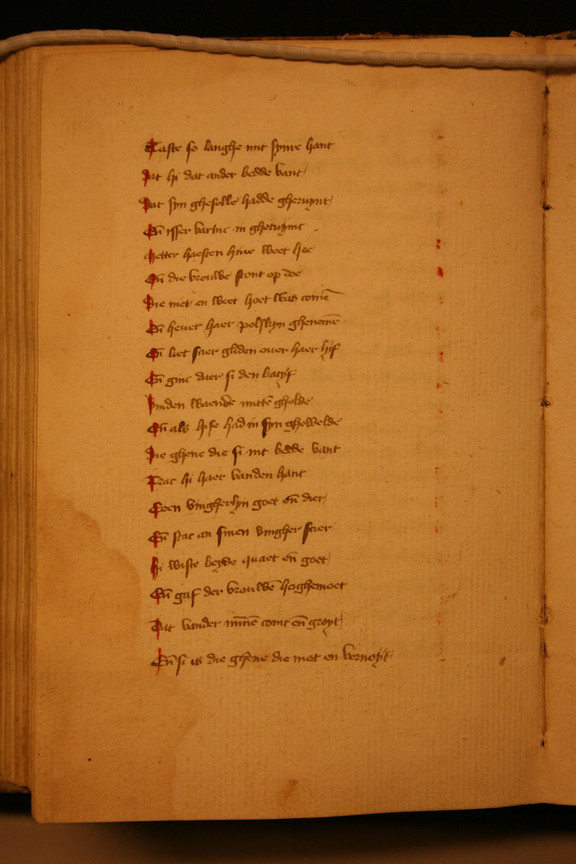 Taste so langhe mit synre hant
Dat hi dat ander bedde vant
Dat syn gheselle hadde gheruymt
En̄ isser vartuc in ghetuymt
Metter haesten hine weet hoe
En̄ die vrouwe stont op doe
Die niet en weet hoet was comē
En̄ hevet haer pelslyn ghenomē
En̄ liet scier gliden over haer lijf
En̄ ginc daer si den batijf
Vinden waende mittē ghelde
En̄ als hise had in syn ghewelde
Die ghene die si int bedde vant
Trac hi haer vanden hant
Een vingherlyn goet en̄ dier
En̄ stac an sinen vingher scier
Hi wiste beyde quaet en̄ goet
En̄ gaf der vrouwē hoghemoet
Dat vander minnē comt en̄ groyt
En̄ si is die ghene die niet en vernoyt